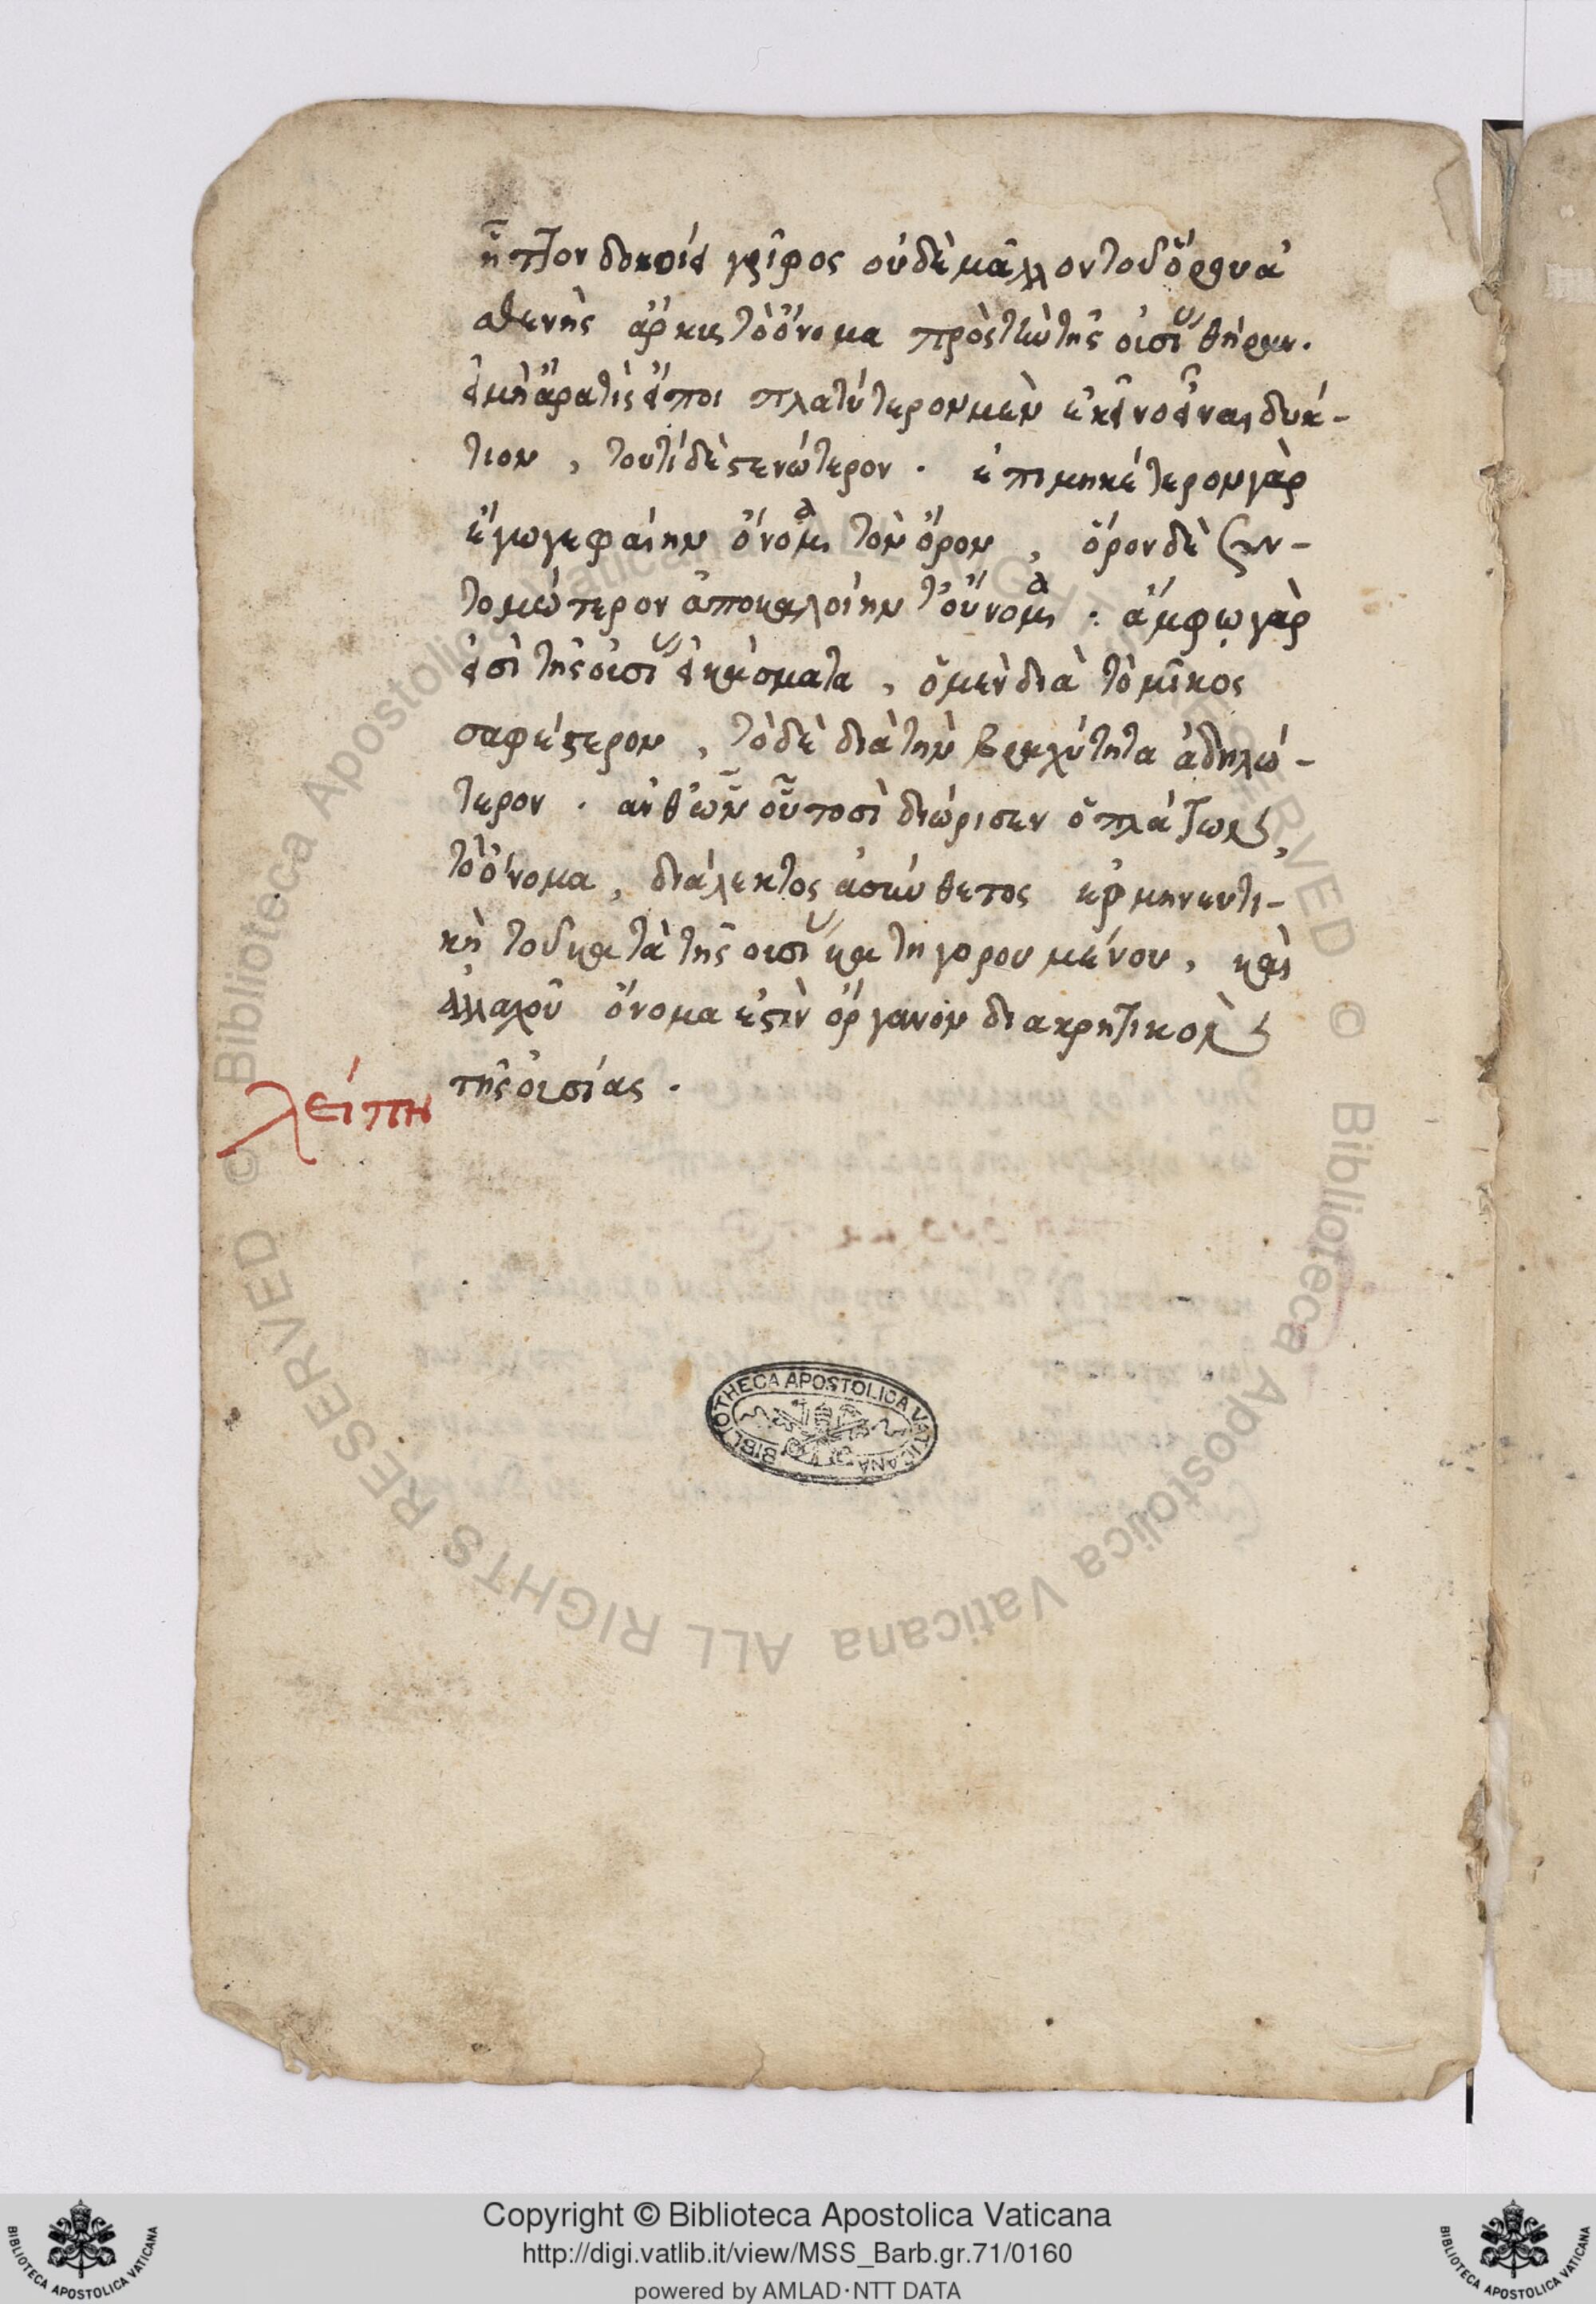 ἧττον δοκοίει γρῖφος οὐδὲ μᾶλλον τοῦ ὅρου ἀ
σθενὴς ἄρκυς τὸ ὄνομα πρὸς τὴν τῆς οὐσί θήραν.
εἰ μὴ ἄρα τὶς εἴποι πλατύτερον μὲν ἐκεῖνο εἶναι δυκ-
τιον, τουτὶ δὲ στενώτερον. ἐπιμηκέτερον γὰρ
ἔγωγε φαίην ὄνομα τὸν ὅρον, ὅρον δὲ συν-
τομώτερον ἀποκαλοίην τοὔνομα. ἄμφω γὰρ
εἰσὶ τῆς οὐσί εἰκάσματα, ὃ μὲν διὰ τὸ μῖκος
σαφέστερον, τὸ δὲ διὰ τὴν βραχύτητα ἀδηλώ-
τερον. ἀνθ' ὧν οὗτοσὶ διώρισεν ὁ πλάτων
τὸ ὄνομα, διάλεκτος ἀσύνθετος ἑρμηνευτι-
κὴ τοῦ κατὰ τῆς οὐσί κατηγορουμένου, καὶ
ἀλλαχοῦ ὄνομα ἐστὶν ὄργανον διακρητικὸν
τῆς οὐσίας.
λείπη
BIBLIOTHECA APOSTOLICA VATICANA
© Biblioteca Apostolica Vaticana ALL RIGHTS RESERVED © Biblioteca Apostolica Vaticana ALL RIGHTS RESERVED
Copyright © Biblioteca Apostolica Vaticana
http://digi.vatlib.it/view/MSS_Barb.gr.71/0160
powered by AMLAD·NTT DATA
BIBLIOTECA APOSTOLICA VATICANA
BIBLIOTECA APOSTOLICA VATICANA